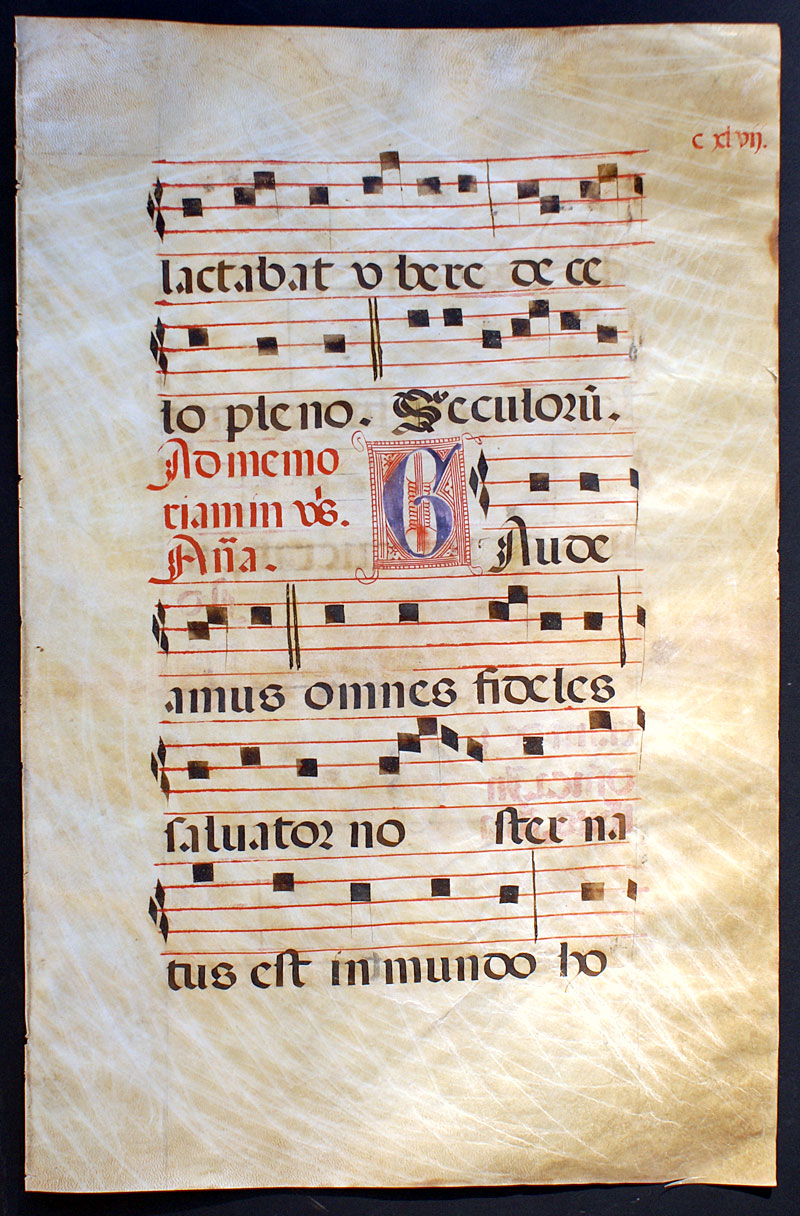 c xlvij.
lactabat v bere de ce
lo pleno. Seculorū.
Ad memo
riam in v̄s.
Aña.
GAude
amus omnes fideles
saluator no ster na
tus est in mundo ho